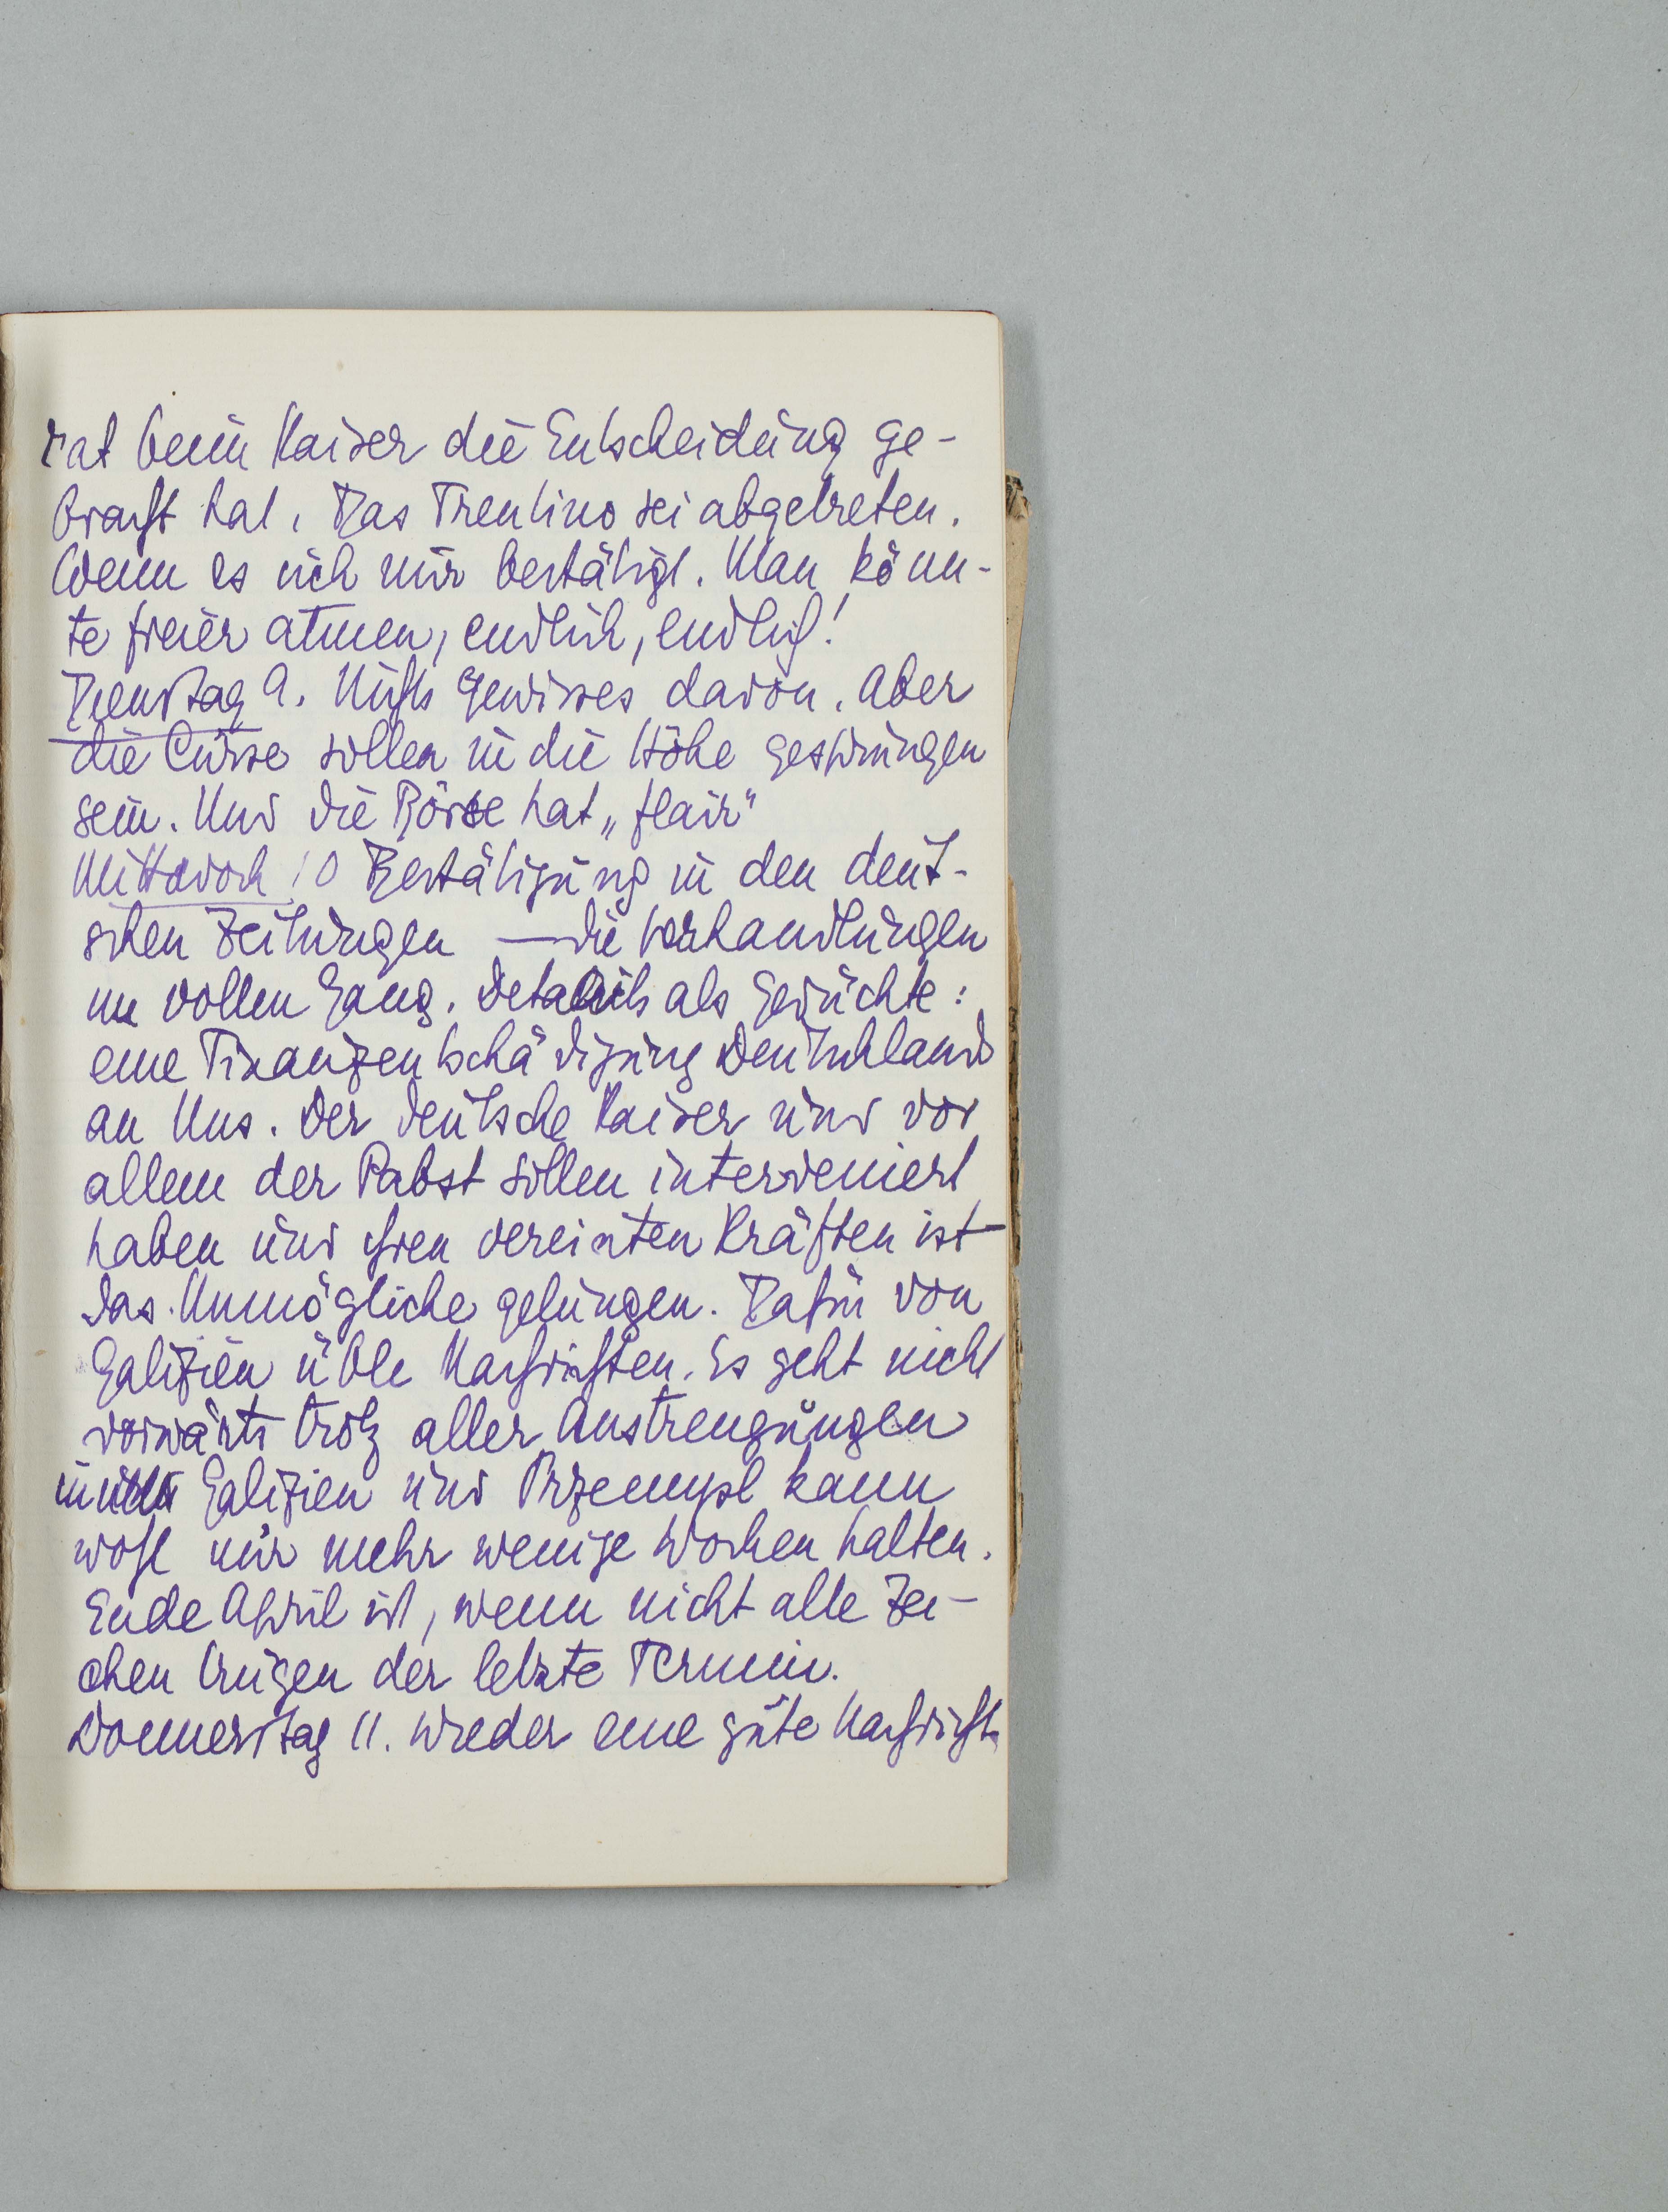 rat beim Kaiser die Entscheidung ge-
bracht hat. Das Trentino sei abgetreten.
Wenn es sich nur bestätigt. Man könn-
te freier atmen, endlich, endlich!
Dienstag 9. Nichts Gewisses davon. Aber
die Curse sollen in die Höhe gesprungen
sein. Und die Börse hat „flair“
Mittwoch 10 Bestätigung in den deut-
schen Zeitungen — die Verhandlungen
im vollen Gang. Details als Gerüchte:
eine Finanzentschädigung Deutschlands
an Uns. Der deutsche Kaiser und vor
allem der Pabst sollen interveniert
haben und ihren vereinten Kräften ist
das Unmögliche gelungen. Dafür von
Galizien üble Nachrichten. Es geht nicht
vorwärts trotz aller Anstrengungen
in Galizien und Przemysl kann
wohl nur mehr wenige Wochen halten.
Ende April ist, wenn nicht alle Zei-
chen trügen der letzte Termin.
Donnerstag 11. Wieder eine gute Nachricht.